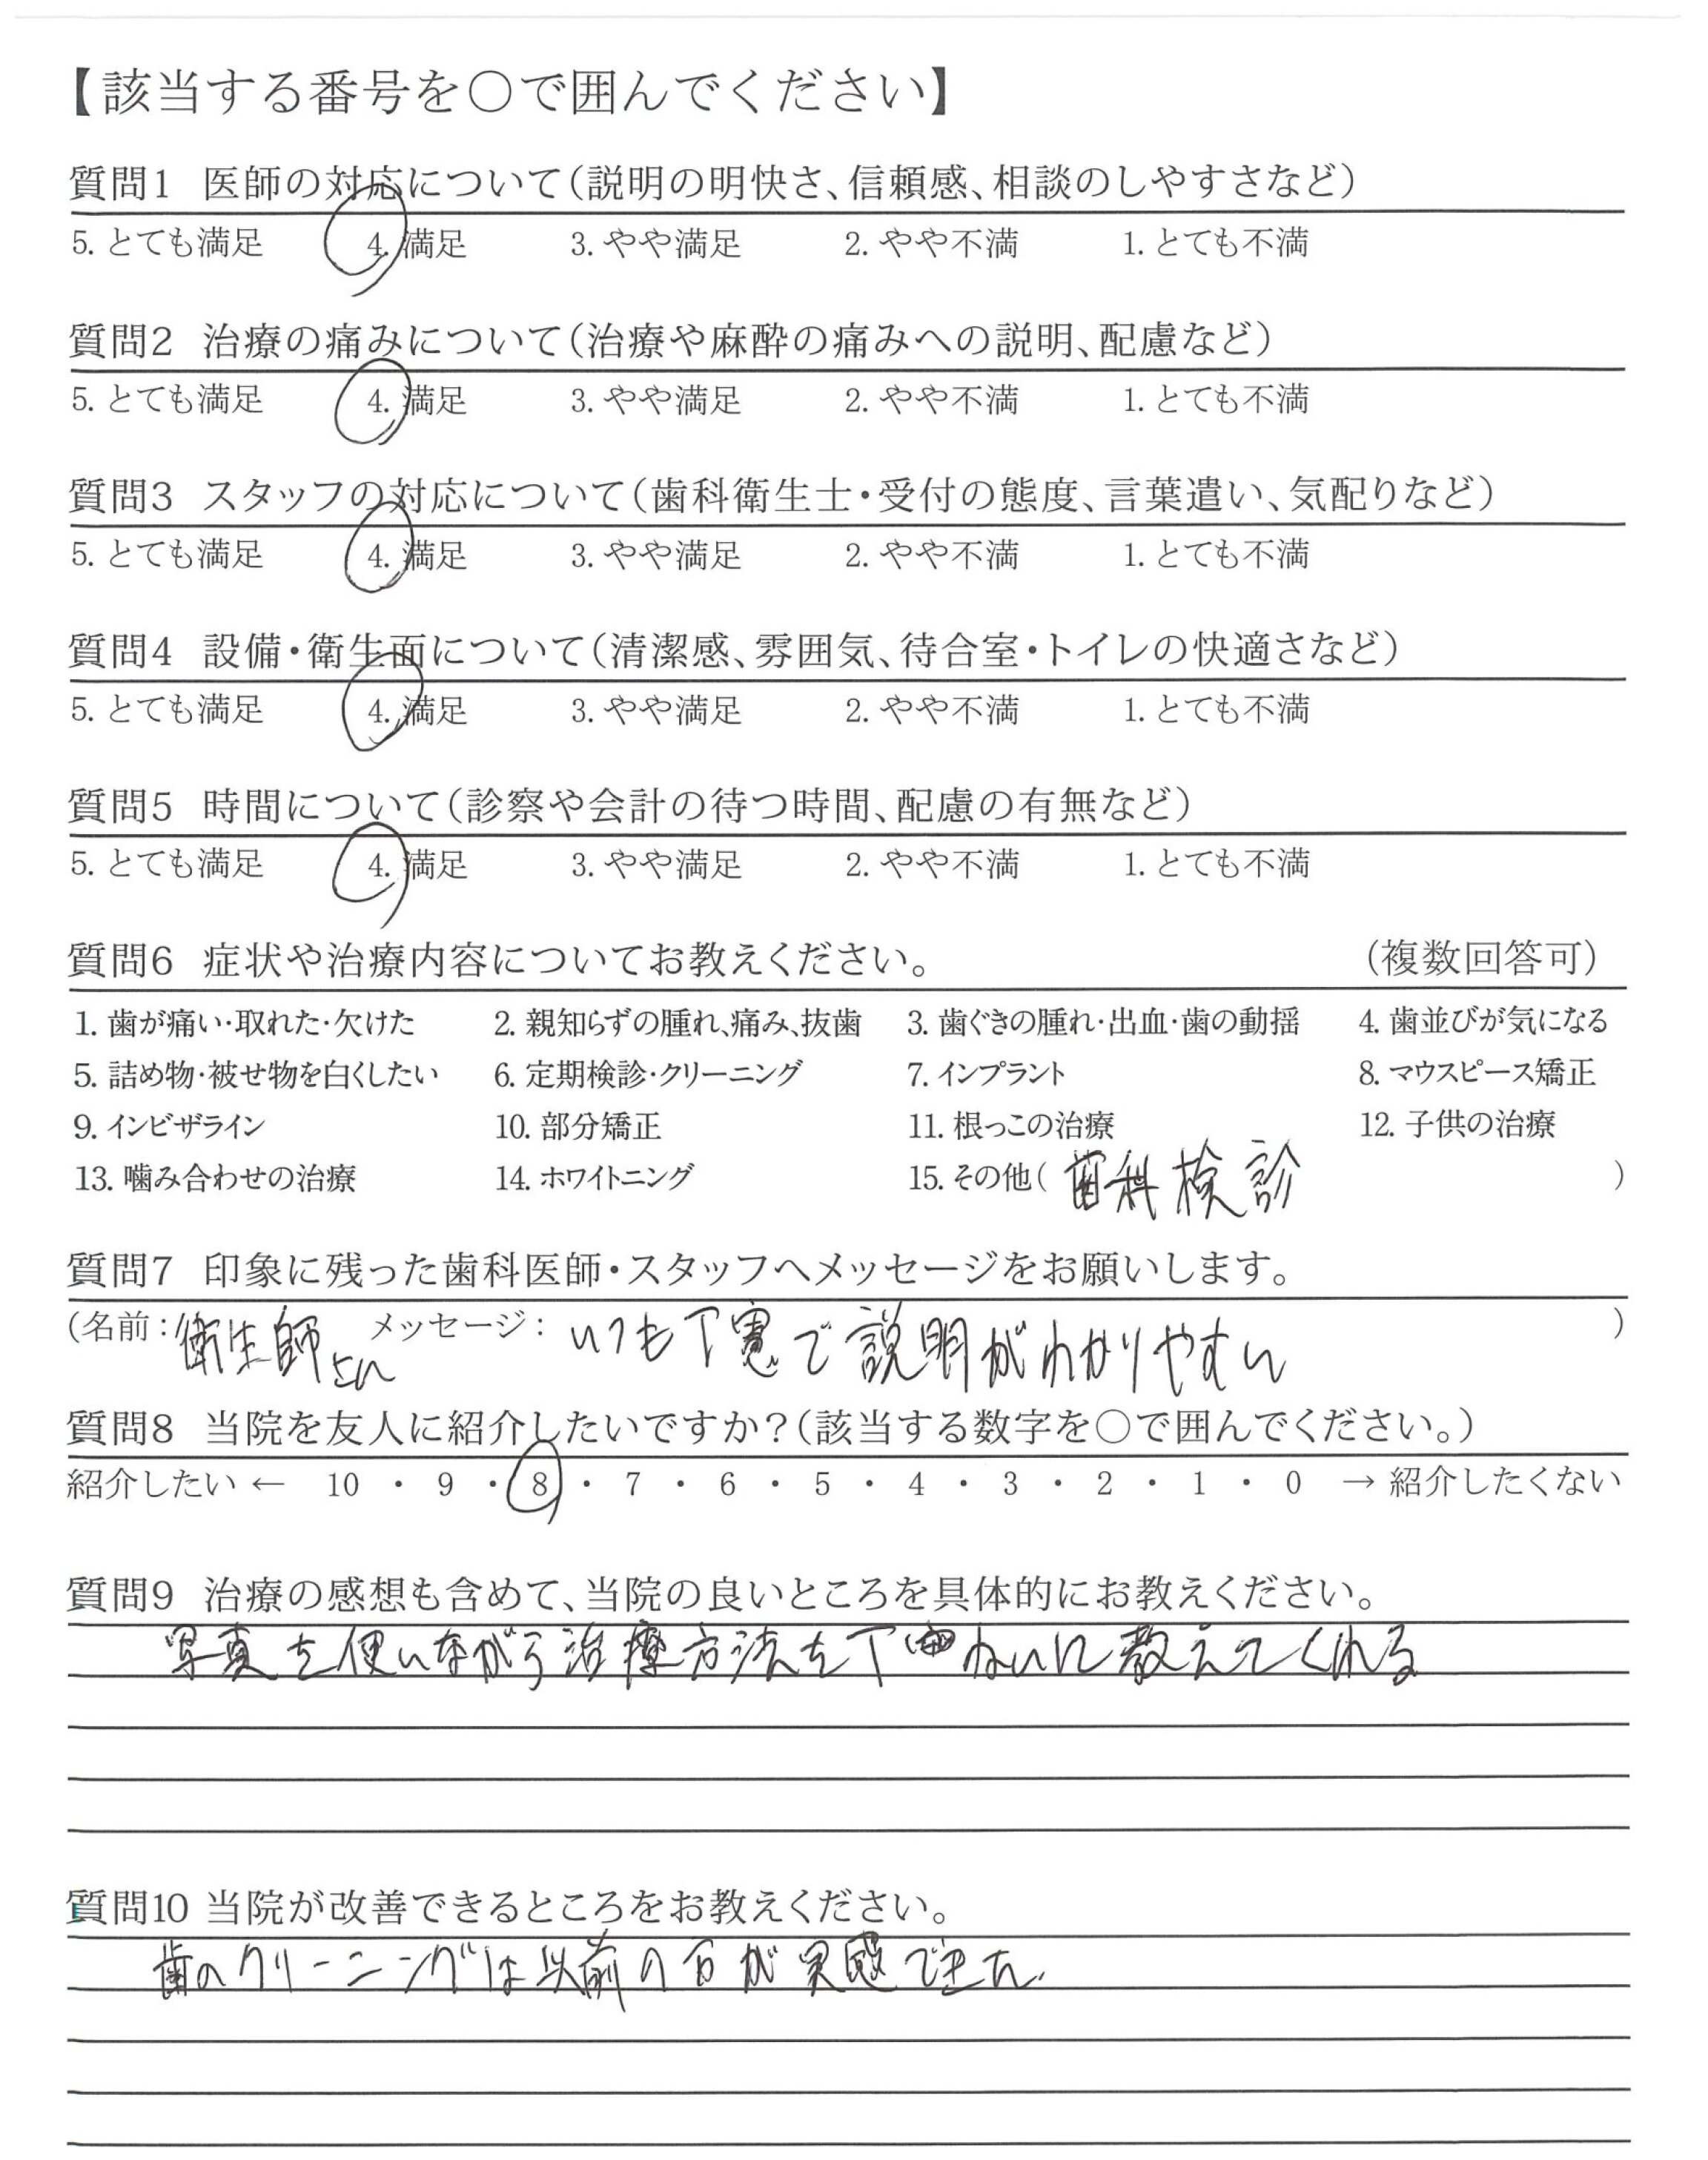 【該当する番号を○で囲んでください】
質問1 医師の対応について(説明の明快さ、信頼感、相談のしやすさなど)
5. とても満足 4. 満足 3. やや満足 2. やや不満 1. とても不満
質問2 治療の痛みについて(治療や麻酔の痛みへの説明、配慮など)
5. とても満足 4. 満足 3. やや満足 2. やや不満 1. とても不満
質問3 スタッフの対応について(歯科衛生士・受付の態度、言葉遣い、気配りなど)
5. とても満足 4. 満足 3. やや満足 2. やや不満 1. とても不満
質問4 設備・衛生面について(清潔感、雰囲気、待合室・トイレの快適さなど)
5. とても満足 4. 満足 3. やや満足 2. やや不満 1. とても不満
質問5 時間について(診察や会計の待つ時間、配慮の有無など)
5. とても満足 4. 満足 3. やや満足 2. やや不満 1. とても不満
質問6 症状や治療内容についてお教えください。 (複数回答可)
1. 歯が痛い・取れた・欠けた 2. 親知らずの腫れ、痛み、抜歯 3. 歯ぐきの腫れ・出血・歯の動揺 4. 歯並びが気になる
5. 詰め物・被せ物を白くしたい 6. 定期検診・クリーニング 7. インプラント 8. マウスピース矯正
9. インビザライン 10. 部分矯正 11. 根っこの治療 12. 子供の治療
13. 噛み合わせの治療 14. ホワイトニング 15. その他( 歯科検診 )
質問7 印象に残った歯科医師・スタッフへメッセージをお願いします。
(名前:衛生師さん メッセージ: いつも丁寧で説明がわかりやすい )
質問8 当院を友人に紹介したいですか?(該当する数字を○で囲んでください。)
紹介したい ← 10 ・ 9 ・ 8 ・ 7 ・ 6 ・ 5 ・ 4 ・ 3 ・ 2 ・ 1 ・ 0 → 紹介したくない
質問9 治療の感想も含めて、当院の良いところを具体的にお教えください。
写真を使いながら治療方法を丁ねいに教えてくれる
質問10 当院が改善できるところをお教えください。
歯のクリーニングは以前の方が実感できた。